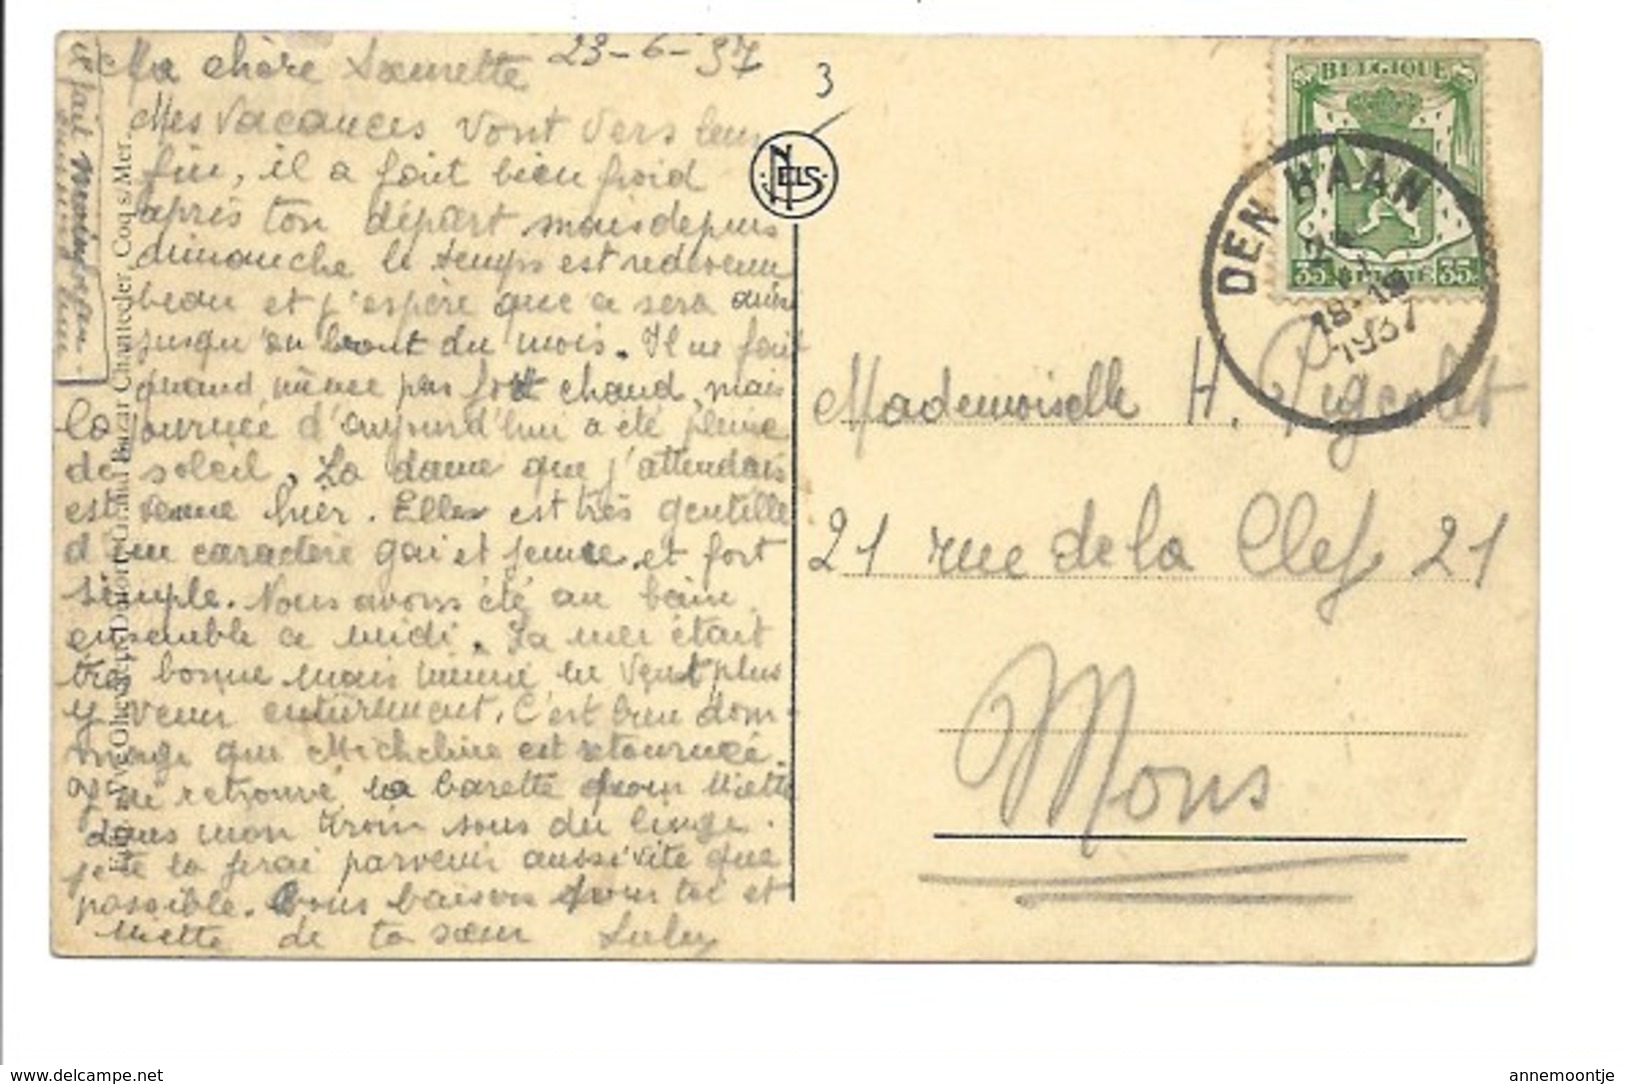 23-6-37
Ma chère Sœurette
Mes vacances vont vers leur
fin, il a fait bien froid
après ton départ mais depuis
dimanche le temps est redevenu
beau et j'espère que ce sera ainsi
jusqu'au bout du mois. Il ne fait
quand même pas fort chaud, mais
la journée d'aujourd'hui a été pleine
de soleil. La dame que j'attendais
est venue hier. Elle est très gentille
d'un caractère gai et jeune et fort
simple. Nous avons été au bain
ensemble ce midi. La mer était
très bonne mais mimi ne veut plus
y venir entièrement. C'est bien dom-
mage que Micheline est retournée.
J'ai retrouvé la barette pour Miette
dans mon tiroir sous du linge.
je te la ferai parvenir aussi vite que
possible. Bons baisers pour toi et
Miette de ta sœur
il fait moins beau
3
NELS
BELGIQUE
35 BELGIË 35
DEN HAAN
18-19
1937
Mademoiselle H. Pigeolet
21 rue de la Clef 21
Mons
Edit. Vve Gheysen-Dumort, Grand Bazar Chantecler, Coq s/Mer.
delcampe.net
annemoontje